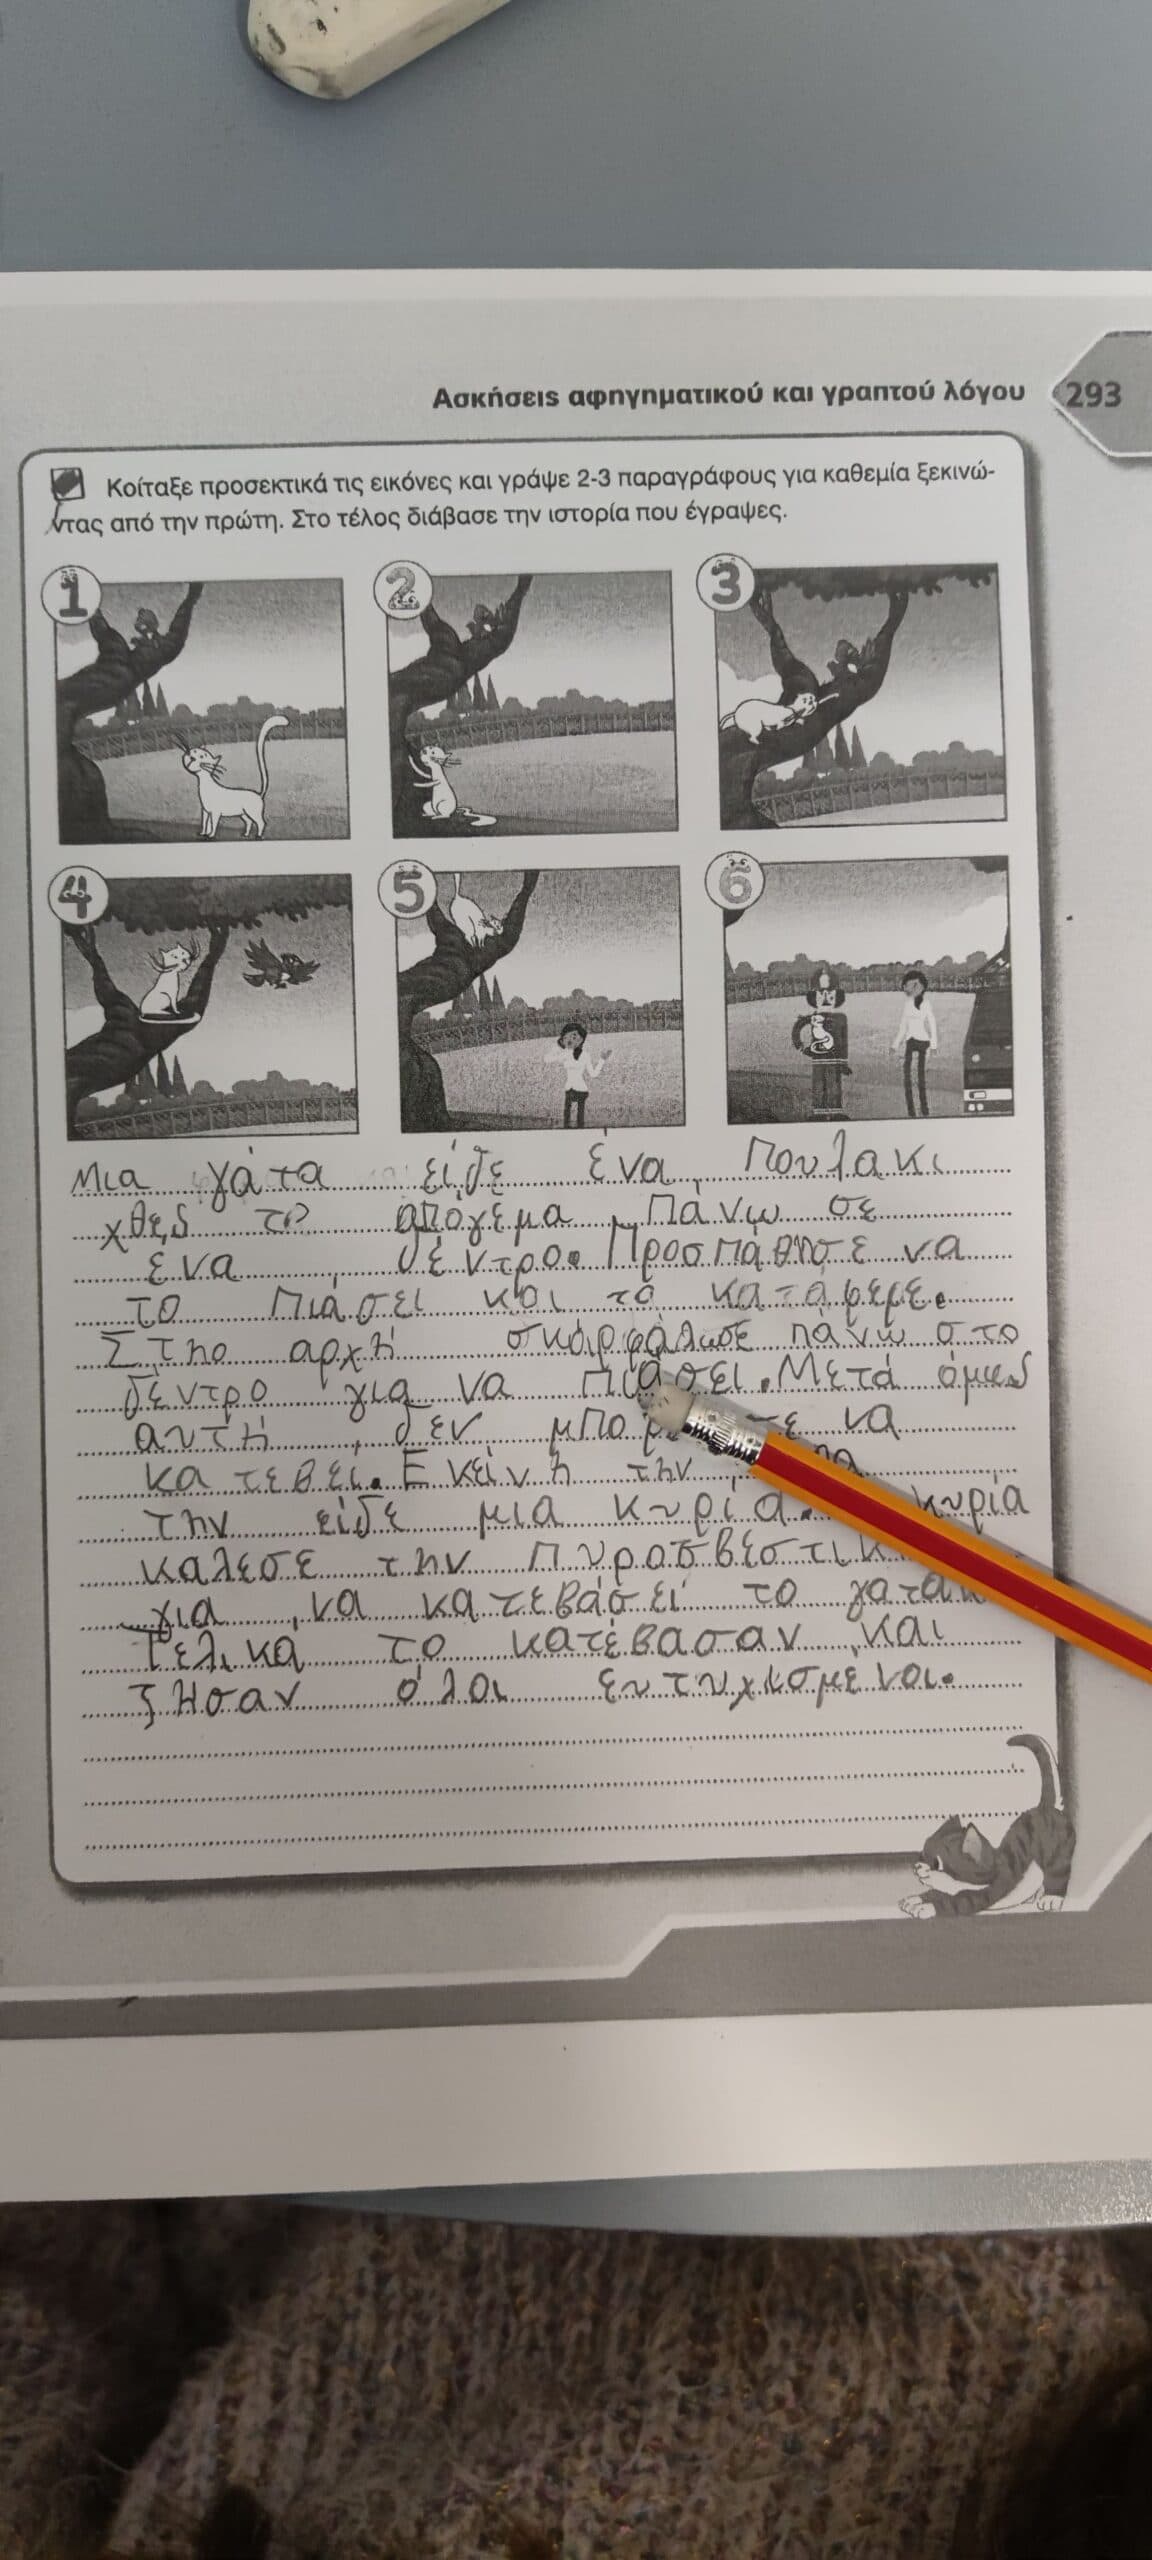 Ασκήσεις αφηγηματικού και γραπτού λόγου
293
Κοίταξε προσεκτικά τις εικόνες και γράψε 2-3 παραγράφους για καθεμία ξεκινώ-
ντας από την πρώτη. Στο τέλος διάβασε την ιστορία που έγραψες.
1
2
3
4
5
6
Μια γάτα είδε ένα πουλακι
χθες το απόγεμα πάνω σε
ενα δέντρο. Προσπάθησε να
το πιάσει και τα κατάφερε.
Στην αρχή σκαρφάλωσε πάνω στο
δέντρο για να πιάσει. Μετά όμως
αυτή δεν να
κατεβεί. Εκείνη την
την είδε μια κυρία. κυρία
καλεσε την
για να κατεβάσει το
Τελικά το κατέβασαν και
ζήσαν όλοι ευτυχισμένοι.